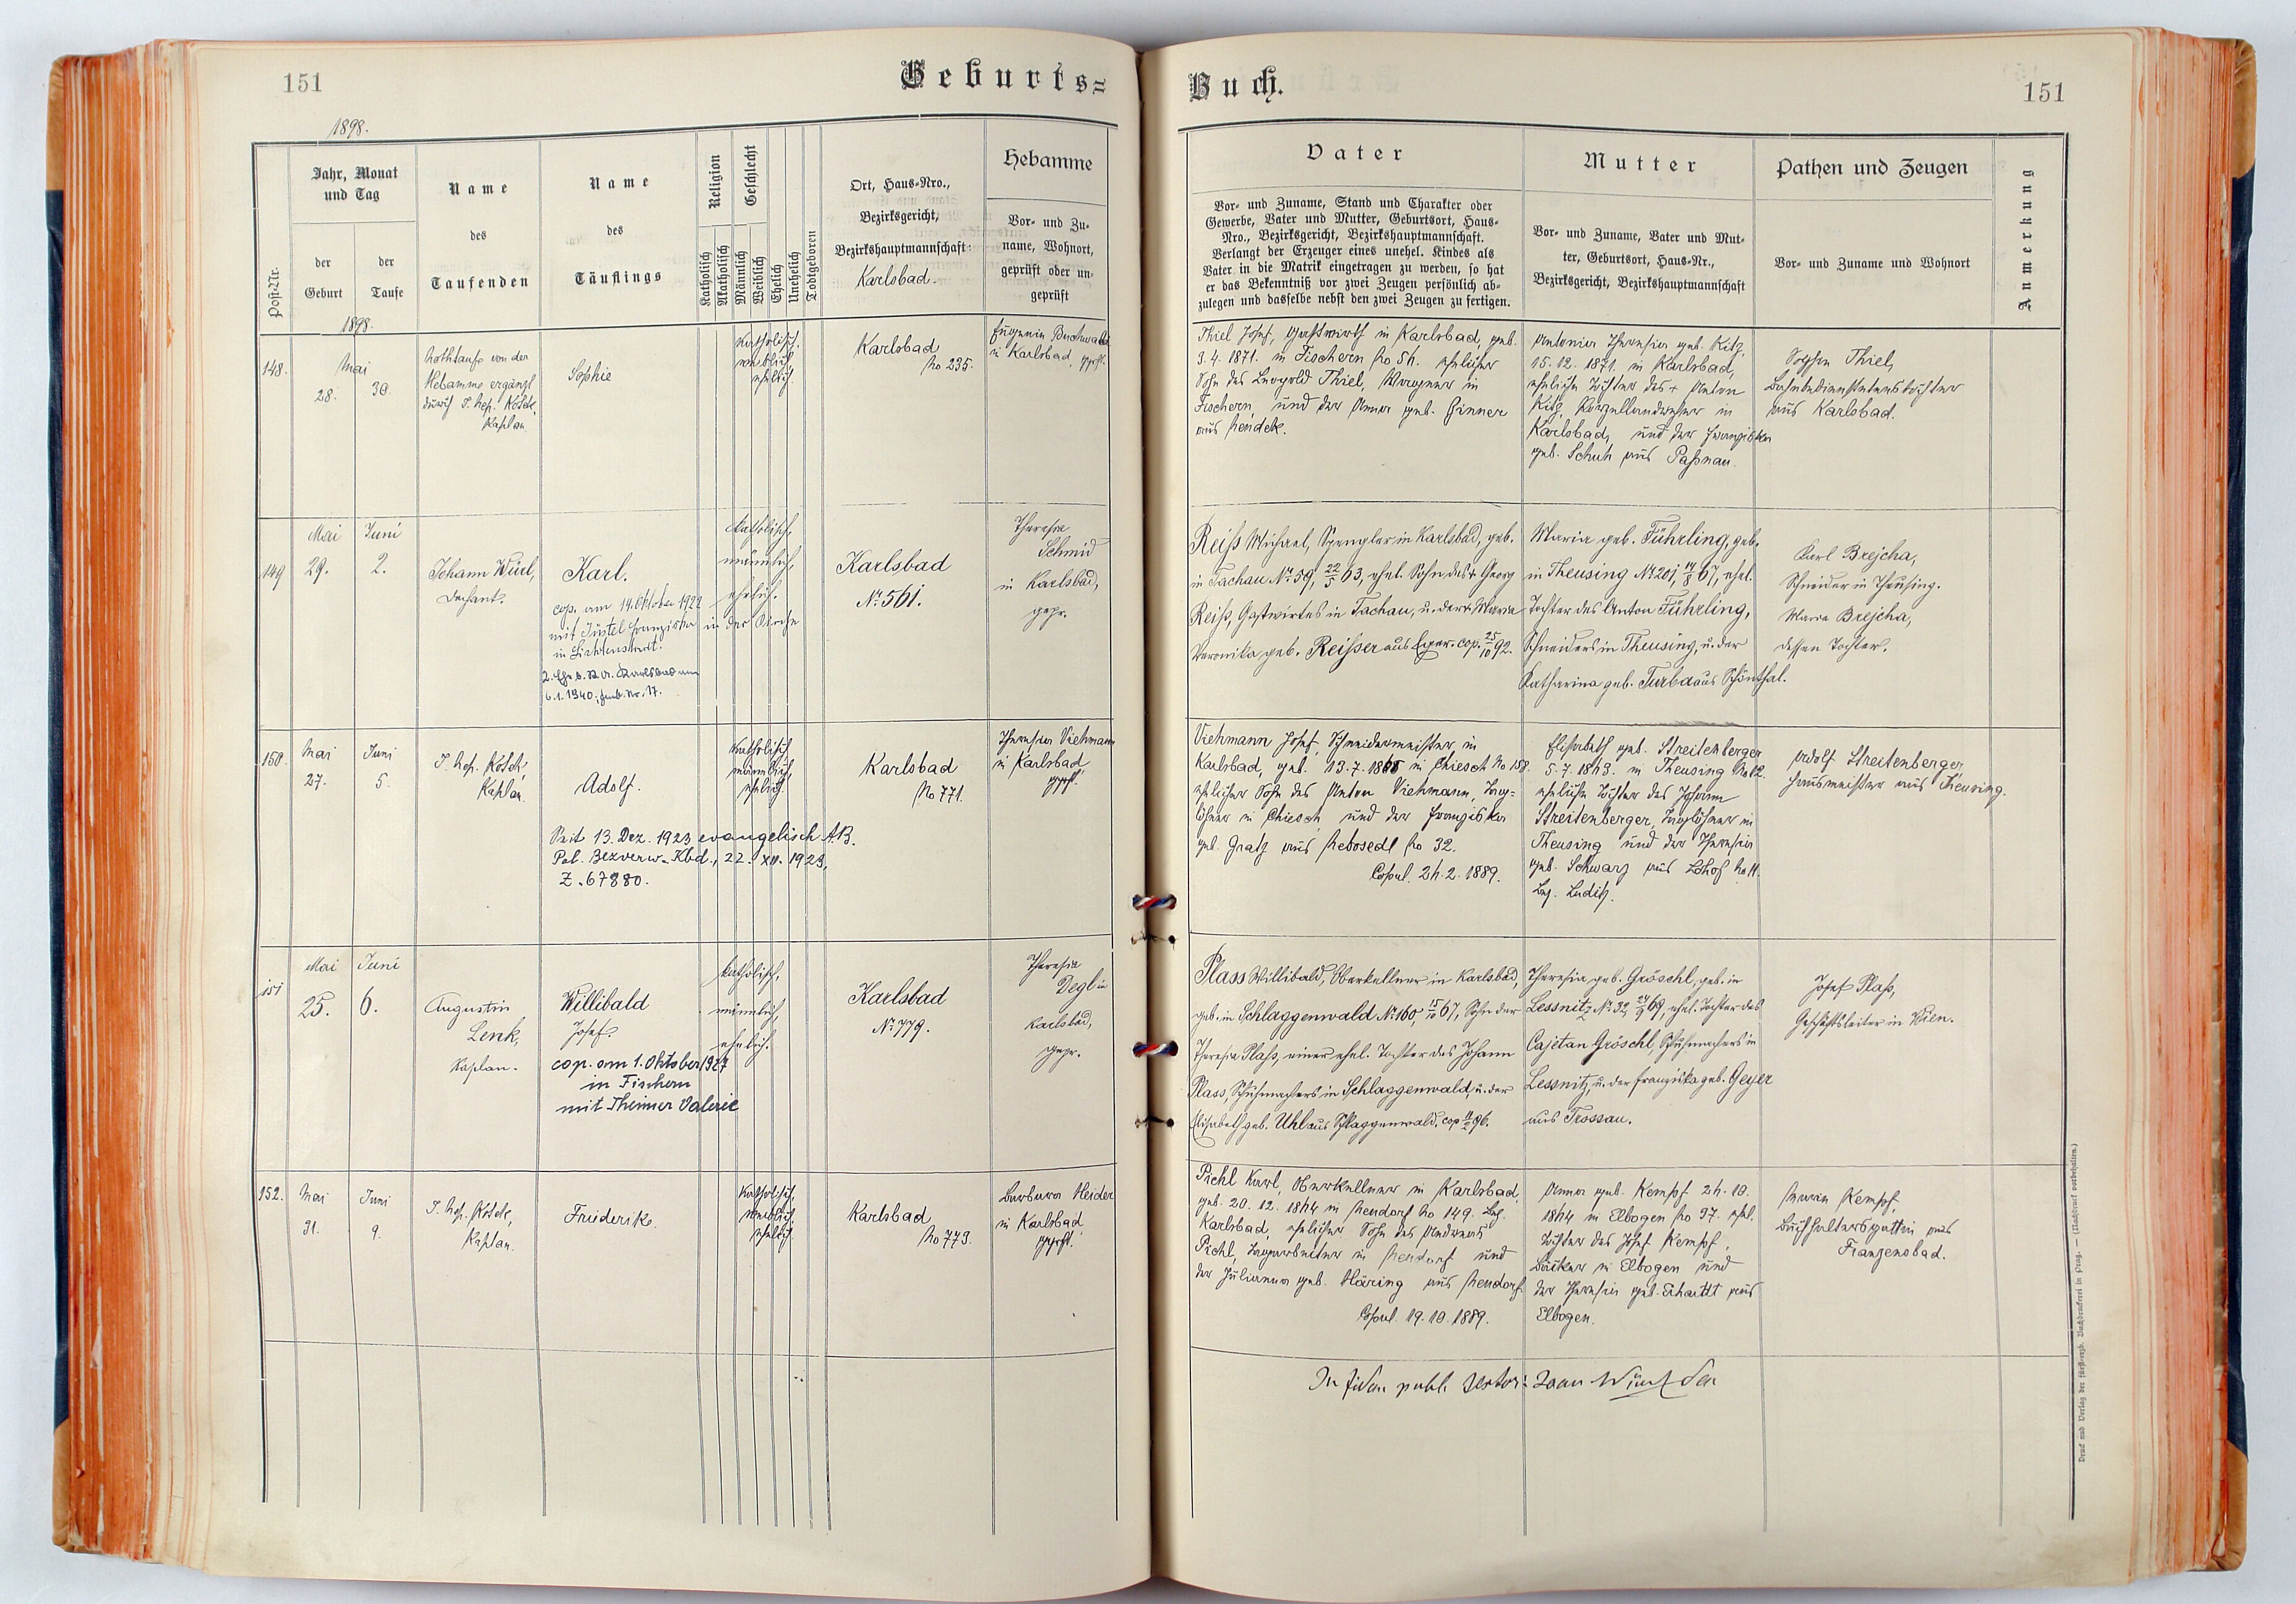 151
Geburts=
1898.
Post-Nr.
Jahr, Monat
und Tag
der
Geburt
der
Taufe
Name
des
Taufenden
Name
des
Täuflings
Religion
Katholisch
Akatholisch
Geschlecht
Männlich
Weiblich
Ehelich
Unehelich
Todtgeboren
Ort, Haus=Nro.,
Bezirksgericht,
Bezirkshauptmannschaft:
Karlsbad.
Hebamme
Vor= und Zu=
name, Wohnort,
geprüft oder un=
geprüft
1898.
148.
Mai
28. 30.
Nothtaufe von der
Hebamme ergänzt
durch J. Nep. Košek,
Kaplan.
Sophie
katholisch,
weiblich,
ehelich.
Karlsbad
No 235.
Eugenie Buchwald
in Karlsbad, gprft.
149
Mai Juni
29. 2.
Johann Würl,
Dechant.
Karl.
cop. am 14. Oktober 1922
mit Jüstel Franziska in der Kirche
in Lichtenstadt.
6.1.1940,
katholisch,
männlich,
ehelich.
Karlsbad
No. 561.
Theresia
Schmid
in Karlsbad,
gepr.
150.
Mai Juni
27. 5.
J. Nep. Košek,
Kaplan.
Adolf.
Seit 13. Dez. 1923 evangelisch A.B.
Pol. Bezverw. Kbd., 22. XII. 1923,
Z. 67880.
katholisch,
männlich,
ehelich.
Karlsbad
No 771.
Theresia Viehmann
in Karlsbad
gprft.
151
Mai Juni
25. 6.
Augustin
Lenk,
Kaplan.
Willibald
Josef.
cop. am 1. Oktober 1927
in Fischern
mit Theimer Valerie
katholisch,
männlich,
ehelich.
Karlsbad
No. 779.
Theresia
Degl in
Karlsbad,
gepr.
152.
Mai Juni
31. 9.
J. Nep. Košek,
Kaplan.
Friederike.
katholisch,
weiblich,
ehelich.
Karlsbad
No 773.
Barbara Heider
in Karlsbad
gprft.
Buch.
151
Vater
Vor= und Zuname, Stand und Charakter oder
Gewerbe, Vater und Mutter, Geburtsort, Haus=
Nro., Bezirksgericht, Bezirkshauptmannschaft.
Verlangt der Erzeuger eines unehel. Kindes als
Vater in die Matrik eingetragen zu werden, so hat
er das Bekenntniß vor zwei Zeugen persönlich ab=
zulegen und dasselbe nebst den zwei Zeugen zu fertigen.
Mutter
Vor= und Zuname, Vater und Mut=
ter, Geburtsort, Haus=Nr.,
Bezirksgericht, Bezirkshauptmannschaft
Pathen und Zeugen
Vor= und Zuname und Wohnort
Anmerkung
Thiel Josef, Gastwirth in Karlsbad, geb.
3. 4. 1871. in Fischern No 54. ehelicher
Sohn des Leopold Thiel, Wagner in
Fischern, und der Anna geb. Ginner
aus Neudek.
Antonia Theresia geb. Kitz,
15. 12. 1871. in Karlsbad,
eheliche Tochter des + Anton
Kitz, Porzellandreher in
Karlsbad, und der Franziska
geb. Schuh aus Paßnau.
Sophie Thiel,
Bahnbedienstetenstochter
aus Karlsbad.
Reiß Michael, Spengler in Karlsbad, geb.
in Tachau No. 59, 22/5 63, ehel. Sohn des + Georg
Reiß, Gastwirtes in Tachau, u. der + Maria
Veronika, geb. Reißer aus Eger. cop. 25/10 92.
Maria geb. Führling, geb.
in Theusing No. 201, 14/8 67, ehel.
Tochter des Anton Führling,
Schneiders in Theusing, u. der
Katharina geb. Turba aus Schönthal.
Karl Brejcha,
Schneider in Theusing.
Maria Brejcha,
dessen Tochter.
Viehmann Josef Schneidermeister in
Karlsbad, geb. 13. 7. 1865 in Chiesch No 158.
ehelicher Sohn des Anton Viehmann, Tag=
löhner in Chiesch und der Franziska
geb. Gratz aus Nebosedl No 32.
Copul. 24. 2. 1889.
Elisabeth geb. Streitenberger
5. 7. 1863. in Theusing No 12.
eheliche Tochter des Johann
Streitenberger, Taglöhner in
Theusing und der Theresia
geb. Schwarz aus Lohof No 11.
Bez. Luditz.
Adolf Streitenberger
Hausmeister aus Theusing.
Plass Willibald, Oberkellner in Karlsbad,
geb. in Schlaggenwald No. 160, 15/10 67, Sohn der
Theresia Plaß, einer ehel. Tochter des Johann
Plass, Schuhmachers in Schlaggenwald, u. der
Elisabeth geb. Uhl aus Schlaggenwald. cop 11/2 96.
Theresia geb. Gröschl, geb. in
Lessnitz No. 32, 24/9 69, ehel. Tochter des
Cajetan Gröschl, Schuhmachers in
Lessnitz, u. der Franziska geb. Geyer
aus Trossau.
Josef Plaß,
Geschäftsleiter in Wien.
Pichl Karl, Oberkellner in Karlsbad,
geb. 20. 12. 1864 in Neudorf No 149. Bez.
Karlsbad, ehelicher Sohn des Andreas
Pichl, Tagarbeiter in Neudorf und
der Julianna geb. Häring aus Neudorf.
Copul. 19. 10. 1889.
Anna geb. Kempf 24. 10.
1864 in Elbogen No 97. ehel.
Tochter des Josef Kempf,
Bäcker in Elbogen und
der Theresia geb. Erhardt aus
Elbogen.
Maria Kempf,
Buchhaltersgattin aus
Franzensbad.
In fidem publ.
Druck und Verlag der fürst-erzb. Buchdruckerei in Prag. — (Nachdruck vorbehalten.)